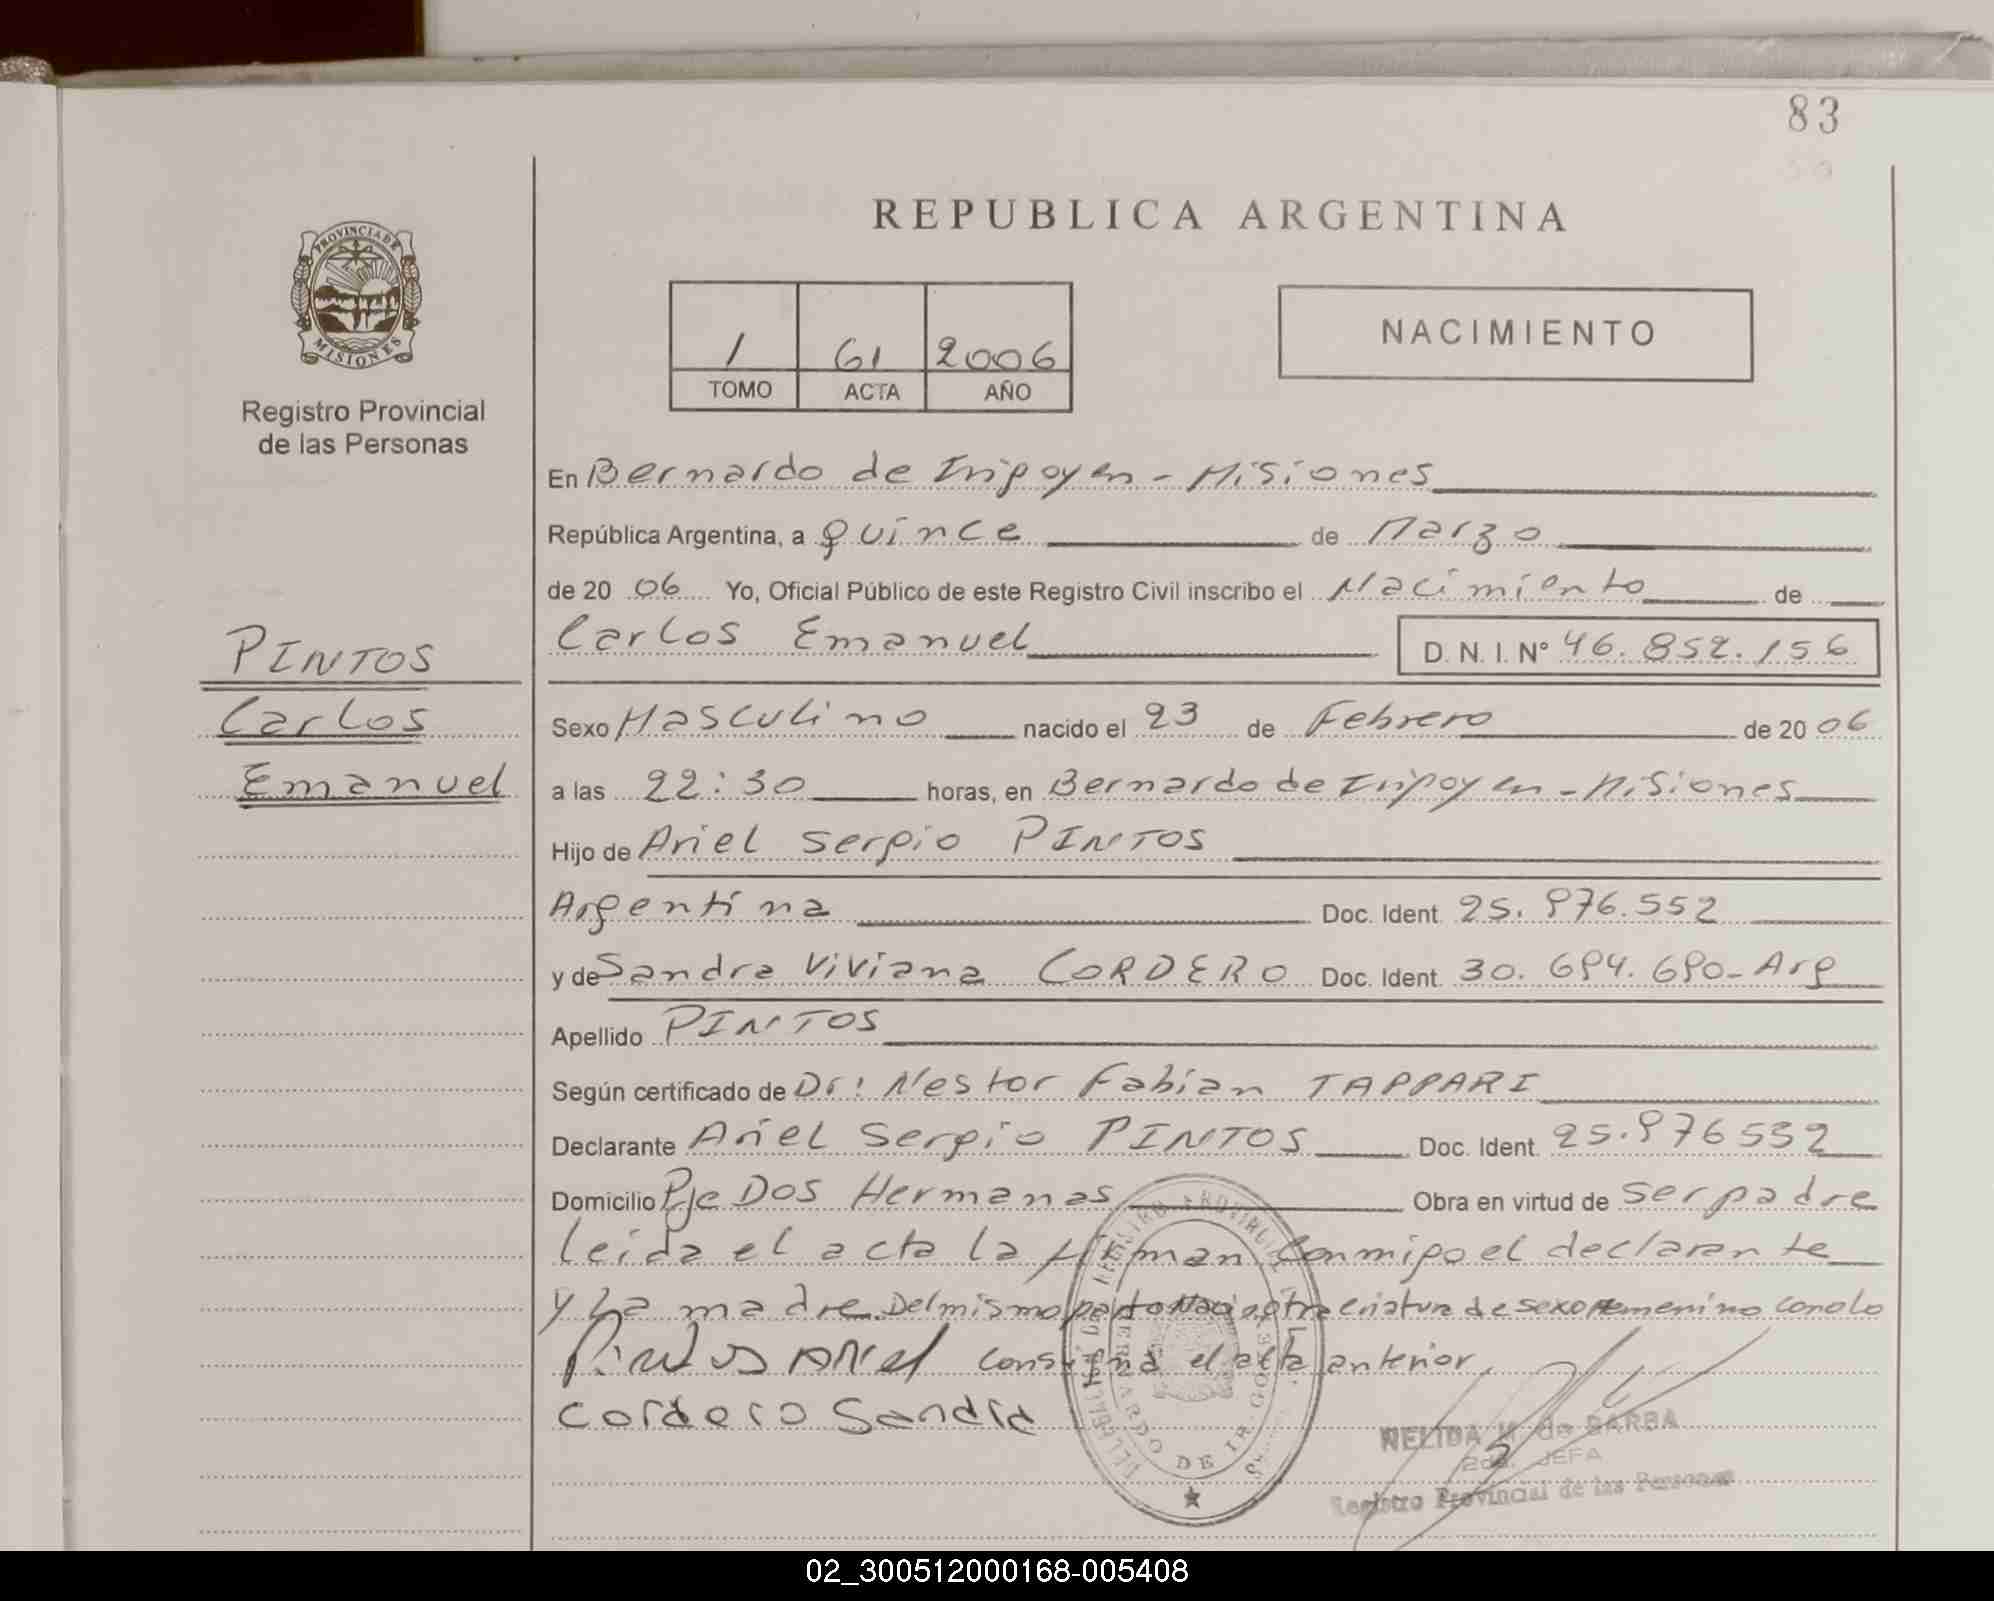 83
REPUBLICA ARGENTINA
PROVINCIA DE
MISIONES
Registro Provincial
de las Personas
1 61 2006
TOMO ACTA AÑO
NACIMIENTO
En Bernardo de Irigoyen - Misiones
República Argentina, a quince de Marzo
de 20 06 Yo, Oficial Público de este Registro Civil inscribo el Nacimiento de
Carlos Emanuel D. N. I. Nº 46.852.156
PINTOS
Carlos
Emanuel
Sexo Masculino nacido el 23 de Febrero de 20 06
a las 22:30 horas, en Bernardo de Irigoyen - Misiones
Hijo de Ariel Sergio PINTOS
Argentina Doc. Ident. 25.976.552
y de Sandra Viviana CORDERO Doc. Ident. 30.694.690 - Arg
Apellido PINTOS
Según certificado de Dr: Nestor Fabian TAPPARI
Declarante Ariel Sergio PINTOS Doc. Ident. 25.976532
Domicilio Pje Dos Hermanas Obra en virtud de ser padre
leida el acta la firman conmigo el declarante
y la madre. Del mismo parto Nacio otra criatura de sexo femenino con lo
Pintos Ariel consigna el acta anterior.
Cordero Sandra
BERNARDO DE IR GOYEN
NELIDA M. de BARBA
2da. JEFA
Registro Provincial de las Personas
02_300512000168-005408